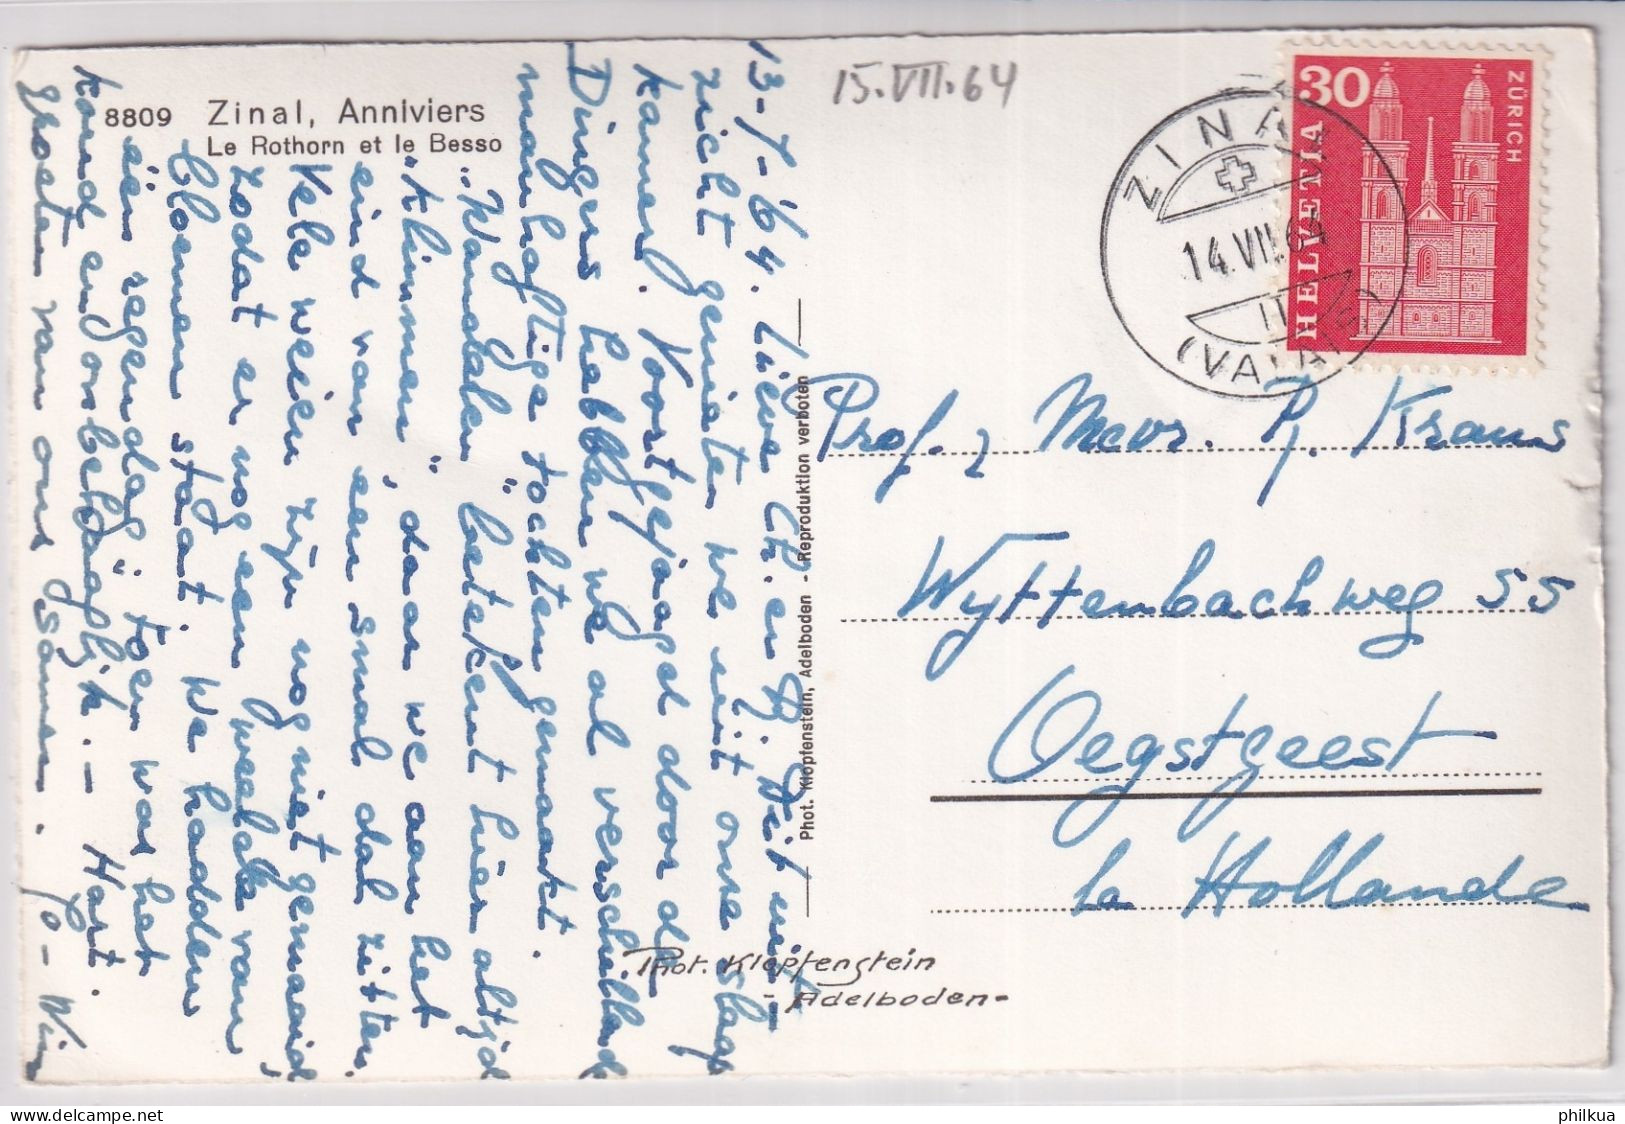 8809 Zinal, Anniviers
Le Rothorn et le Besso
15.VII.64
ZINAL
14.VII.64
II
(VALAIS)
30
HELVETIA
ZÜRICH
13-7-'64. Lieve Ch. en P. Dit uit-
zicht genieten we uit onze slaap
kamer! Voortgejaagd door de
Dingers hebben we al verscheidene
manhaftige tochten gemaakt.
"Wandelen" betekent hier altijd
"klimmen", daar we aan het
eind van een smal dal zitten.
Vele weien zijn nog niet gemaaid,
zodat er nog een weelde van
bloemen staat. We hadden
één regendag; toen was het
koud en onbehaaglijk. – Hart.
groeten van ons samen. Jo - Wim
Phot. Klopfenstein, Adelboden - Reproduktion verboten
Prof. & Mevr. P. Kraus
Wyttenbachweg 55
Oegstgeest
La Hollande
Phot. Klopfenstein
- Adelboden -
philkua